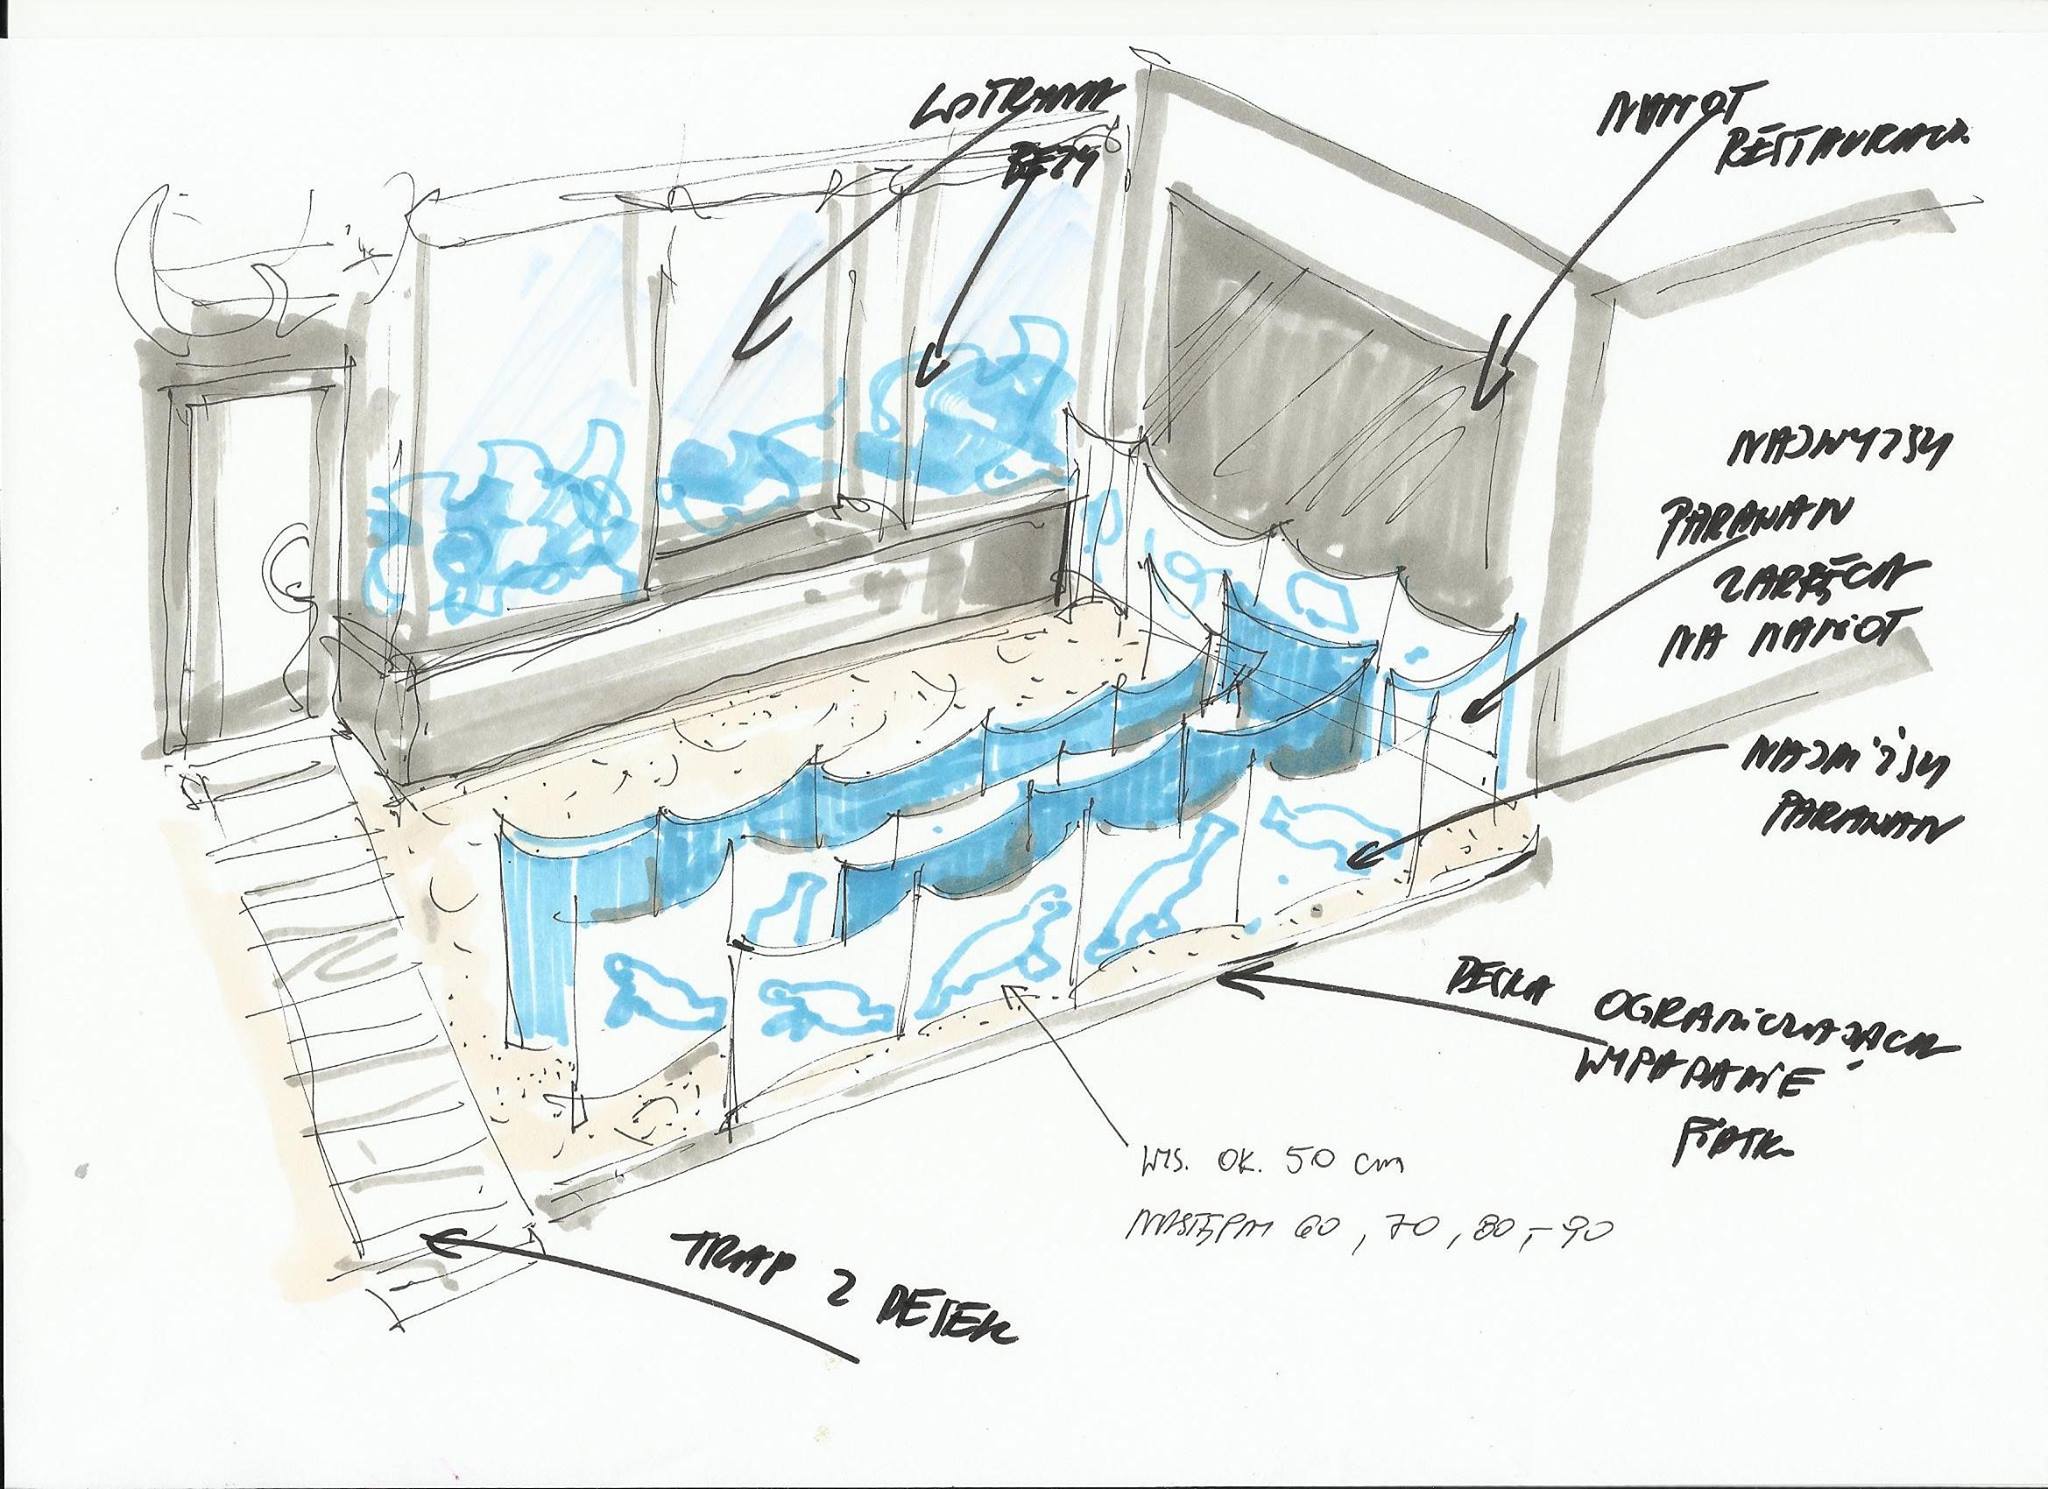 WITRYNA
BEZY
NAMIOT
RESTAURACJI
NAJWYŻSZY
PARAWAN
ZACHĘCA
NA NAMIOT
NAJNIŻSZY
PARAWAN
DESKA OGRANICZAJĄCA
WYPADANIE
PIASK
WYS. OK. 50 cm
NASTĘPNY 60, 70, 80, -90
TRAP Z DESEK